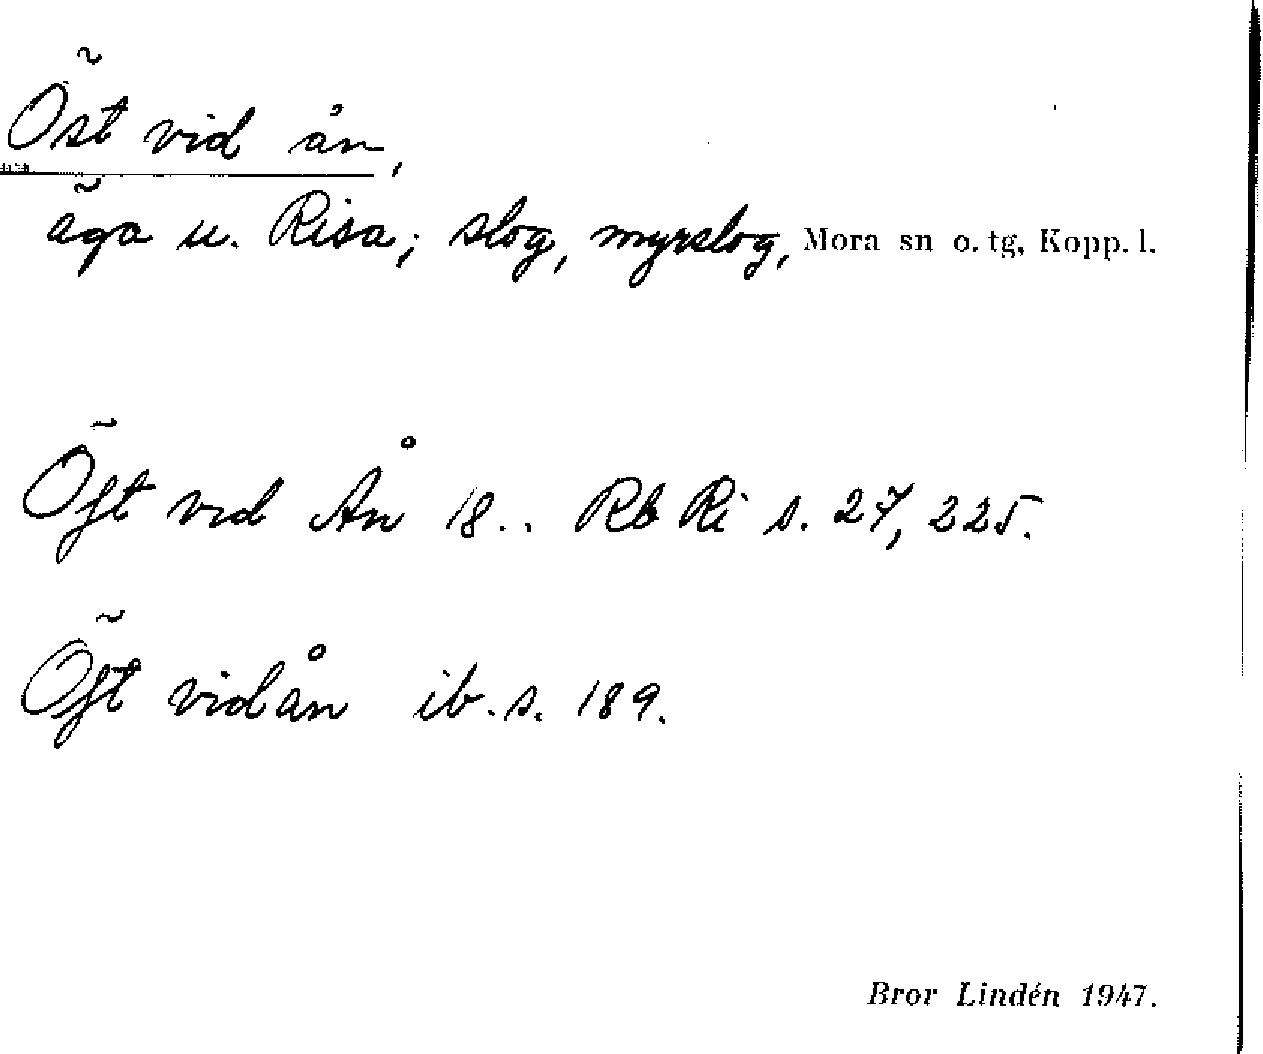 Öst vid ån,
äga u. Risa; slog, myrslog, Mora sn o. tg, Kopp. l.
Öſt vid Ån 18.. Rb Ri s. 27, 225.
Öſt vidån ib. s. 189.
Bror Lindén 1947.